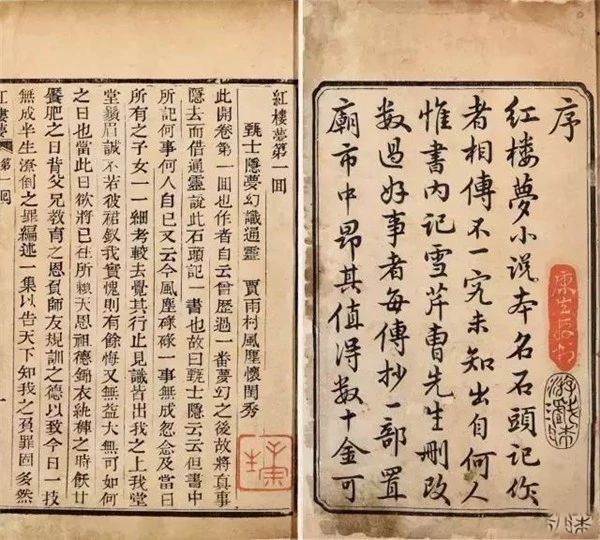 序
红楼夢小説本名石頭記作
者相傳不一究未知出自何人
惟書内記雪芹曹先生刪改
数過好事者每傳抄一部置
廟市中昂其值得数十金可
紅樓夢第一囘
甄士隱夢幻識通靈 賈雨村風塵懷閨秀
此開卷第一囘也作者自云曾歷過一番夢幻之後故將眞事
隱去而借通靈說此石頭記一書也故曰甄士隱云云但書中
所記何事何人自己又云今風塵碌碌一事無成忽念及當日
所有之子女一一細考較去覺其行止見識皆出我之上我堂
堂鬚眉誠不若彼裙釵我實愧則有餘悔又無益大無可如何
之日也當此日欲將已往所賴天恩祖德錦衣紈褲之時飫甘
饜肥之日背父兄教育之恩負師友規訓之德以致今日一技
無成半生潦倒之罪編述一集以告天下知我之負罪固多然
紅樓夢 第一囘 一